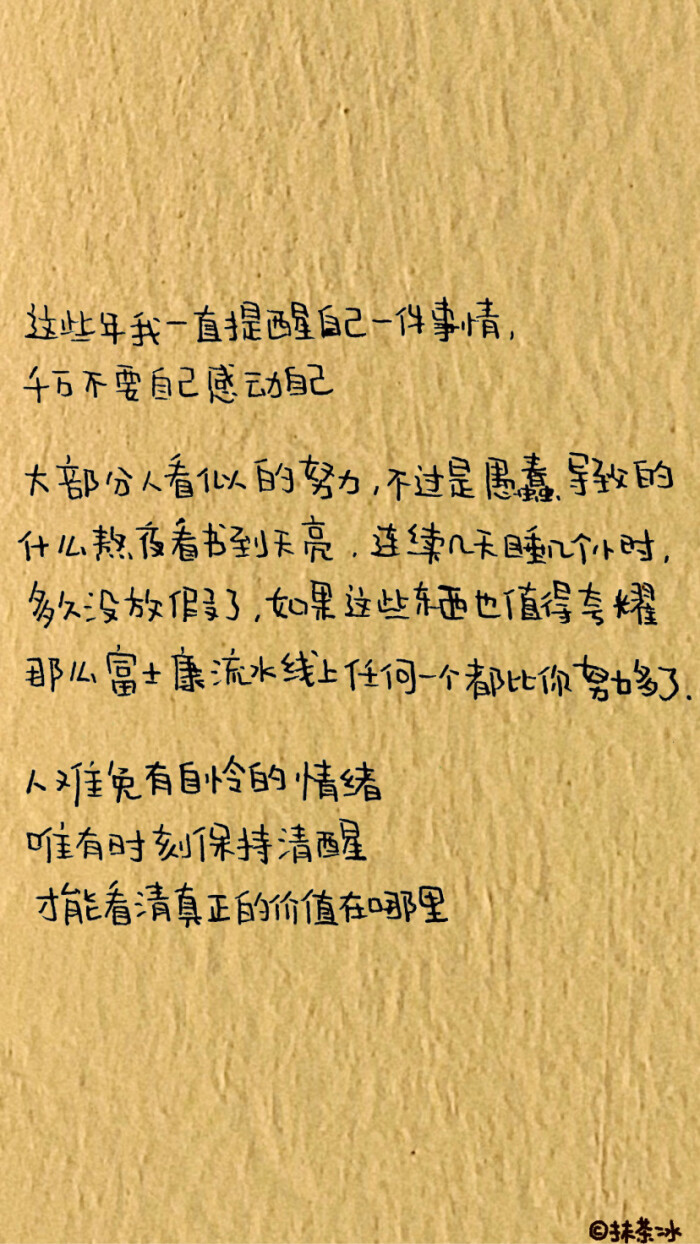 这些年我一直提醒自己一件事情,
千万不要自己感动自己
大部分人看似的努力,不过是愚蠢导致的
什么熬夜看书到天亮.连续几天睡几个小时,
多久没放假了,如果这些东西也值得夸耀
那么富士康流水线上任何一个都比你努力多了.
人难免有自怜的情绪
唯有时刻保持清醒
才能看清真正的价值在哪里
©抹茶冰